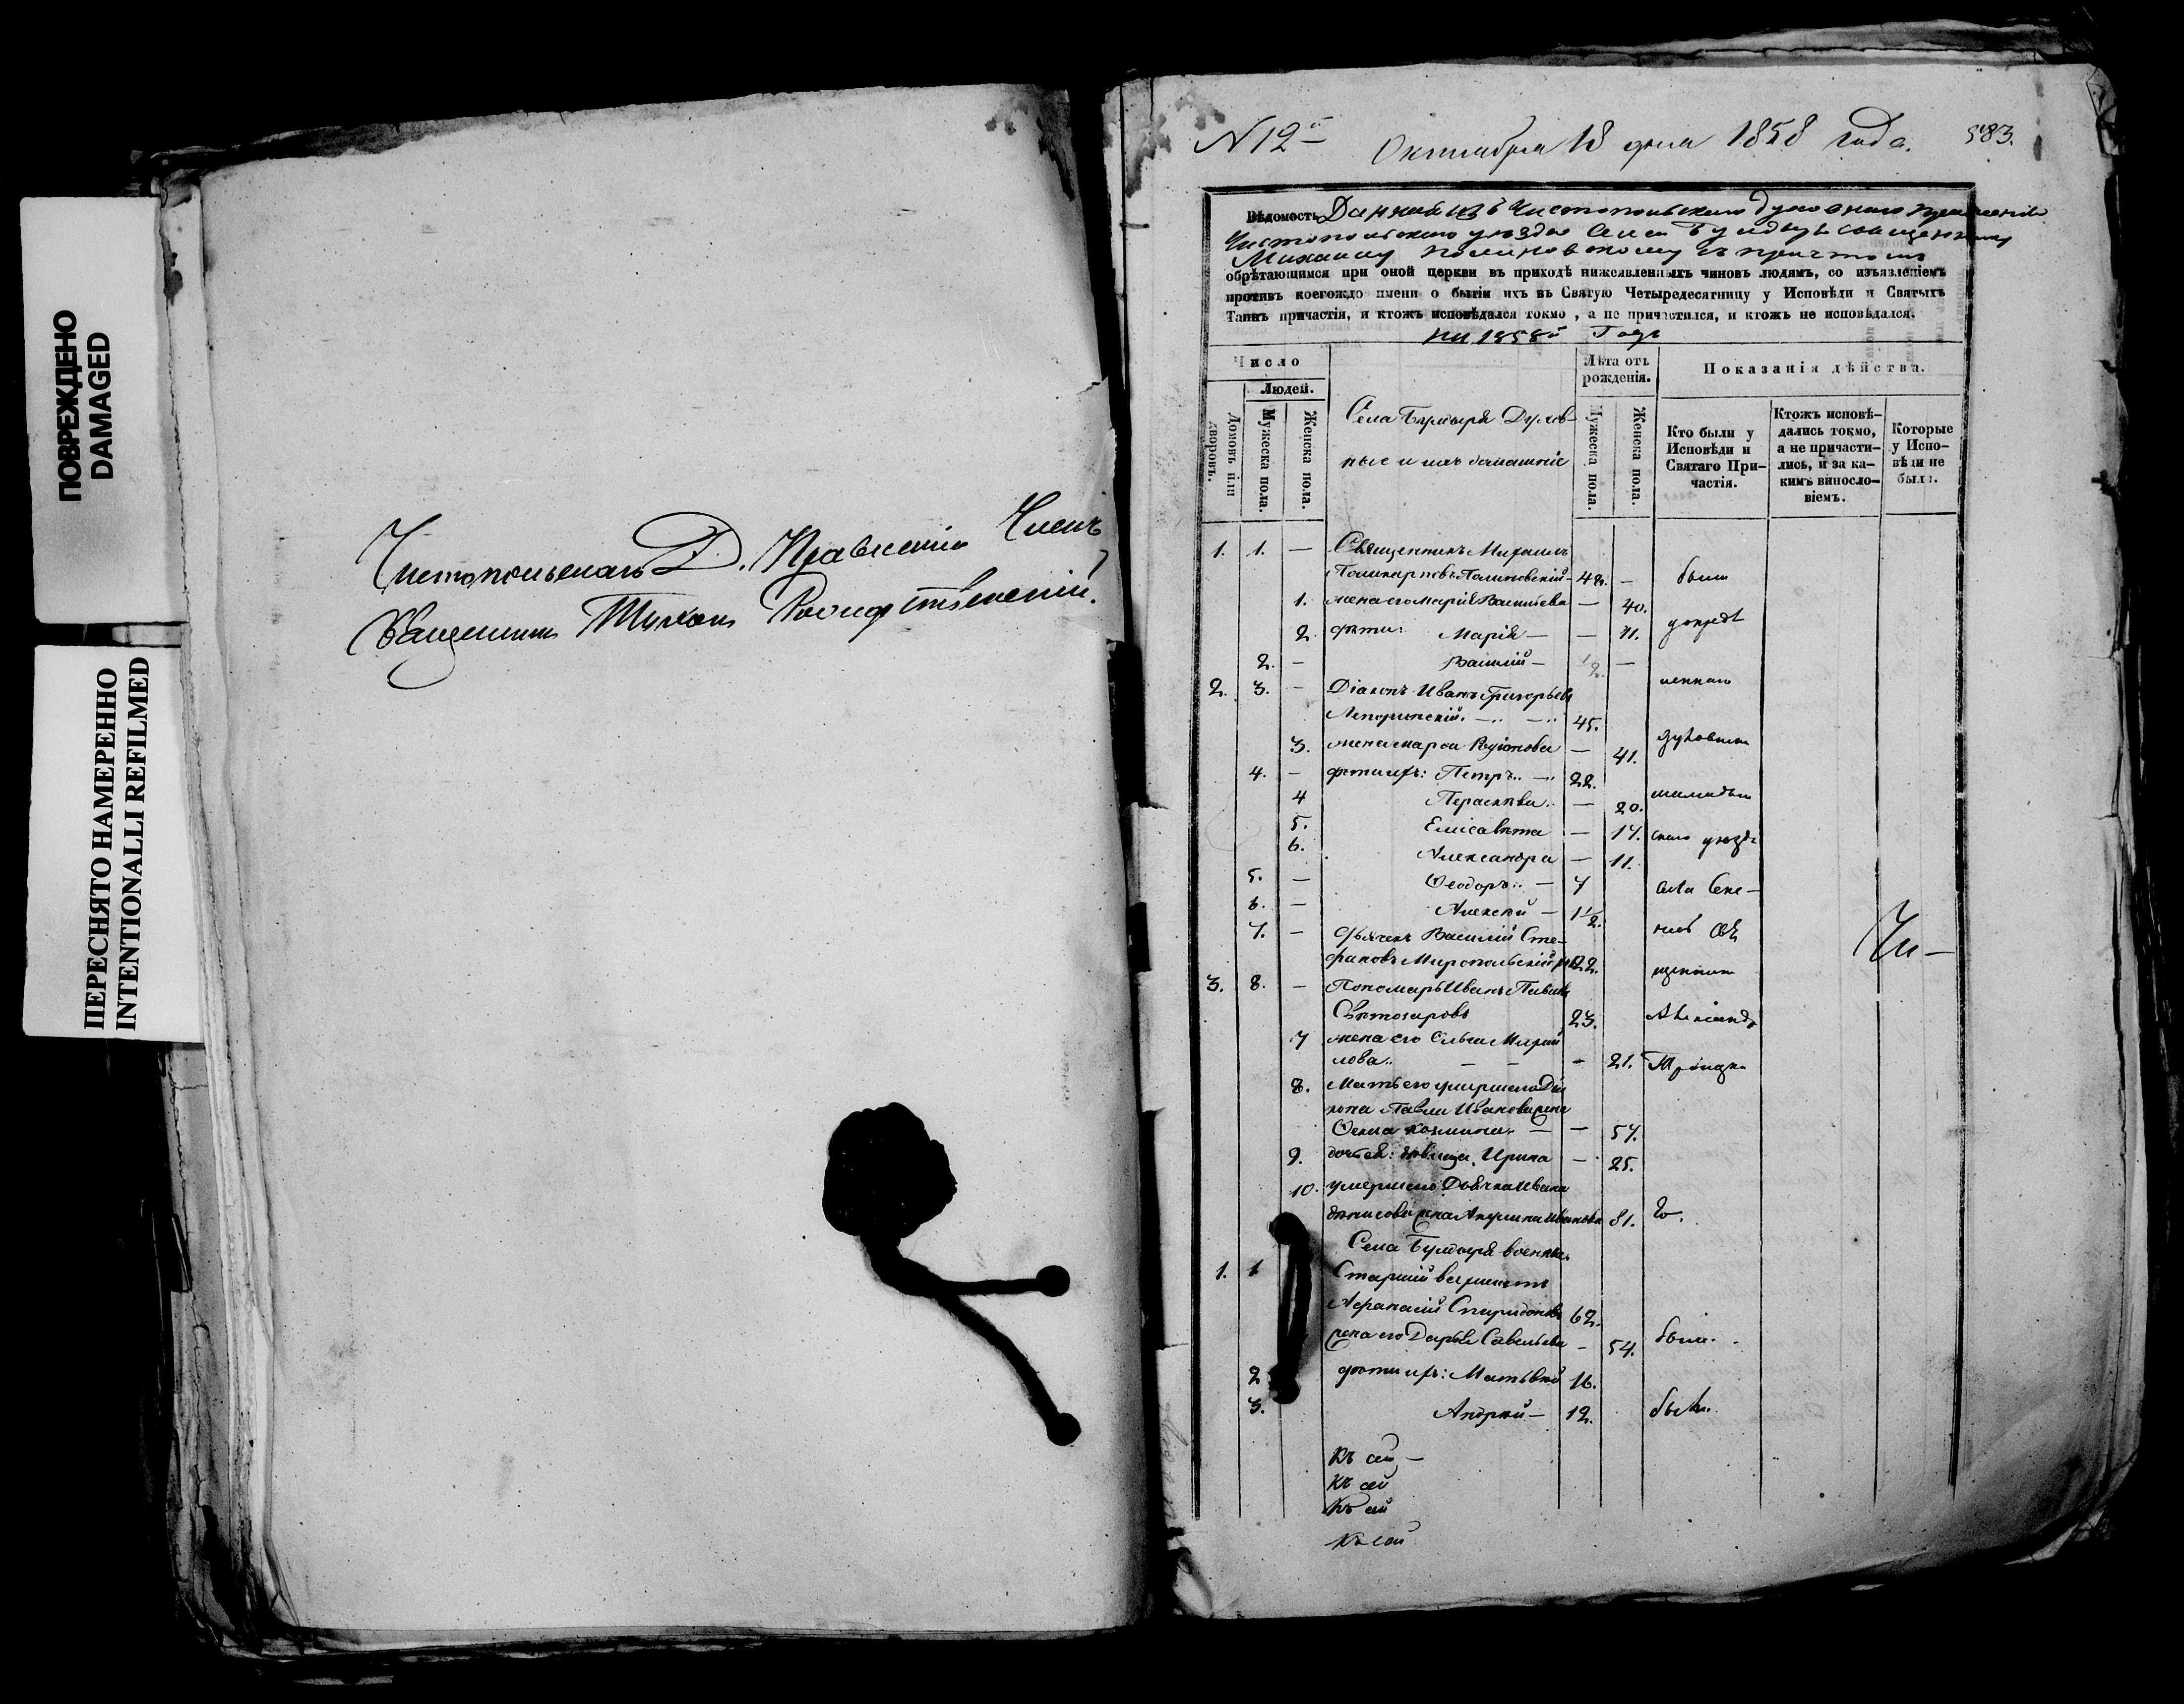 ПОВРЕЖДЕНО
DAMAGED
ПЕРЕСНЯТО НАМЕРЕННО
INTENTIONALLI REFILMED
Чистопольскаго Д. Правленія Членъ
Священникъ Тихонъ Рождественскій.
N 12й Октября 18 дня 1858 года. 583.
Вѣдомость Данная изъ Чистопольскаго Духовнаго правленія
Чистопольскаго уѣзда Села Булдыря Священнику
Михаилу Полиновскому съ причтомъ
обрѣтающимся при оной церкви въ приходѣ нижеявленныхъ чиновъ людямъ, со изъявленіемъ
противъ коегождо имени о бытіи ихъ въ Святую Четыредесятницу у Исповѣди и Святыхъ
Таинъ причастія, и ктожъ исповѣдался токмо, а не причастился, и ктожъ не исповѣдался.
на 1858й Годъ
Число
Людей.
Лѣта отъ рожденія.
Показанія дѣйства.
Домовъ или дворовъ.
Мужеска пола.
Женска пола.
Села Булдыря Духов-
ные и ихъ домашніе
Мужеска пола.
Женска пола.
Кто были у Исповѣди и Святаго При-частія.
Ктожъ исповѣ-дались токмо, а не причасти-лись, и за ка-кимъ винослo-віемъ.
Которые у Испо-вѣди не были.
1. 1. — Священникъ Михаилъ
Поликарповъ Полиновскій — 42. — были
1. жена его Марія Васильева — 40.
2. дѣти: Марія — — 11.
2. — Василій — 1/2 —
2. 3. — Діаконъ Иванъ Григорьевъ
45.
3. жена Марѳа Родіонова — 41. духовника
4. — дѣти ихъ: Петръ 22.
4 Параскева — 20.
5. Елисавета — 17. скаго уѣзда
6. Александра — 11.
5. — Ѳеодоръ — 7 села
6. — Алексій — 1 1/2.
7. — дьячекъ Василій Сте-
фановъ Миропольскій 22.
3. 8. — Пономарь Иванъ Павловъ
23. Александр
7 жена его Ольга
лова — 21. Троицк
8. Мать его умершаго Діа
кона Павла Иванова жена
57.
9. дочь ея: дѣвица Ирина — 25.
10. умершаго Дьячка Ивана
жена Акулина Иванова 81.
Села Булдыря военные
1. 1 Старшій
Аѳанасій Спиридоновъ 62.
жена его Дарья Савельева — 54. были.
2 дѣти ихъ: Матвѣй 16.
3. Андрей — 12. были.
Чи—
Къ сей —
Къ сей
Къ сей
Къ сей